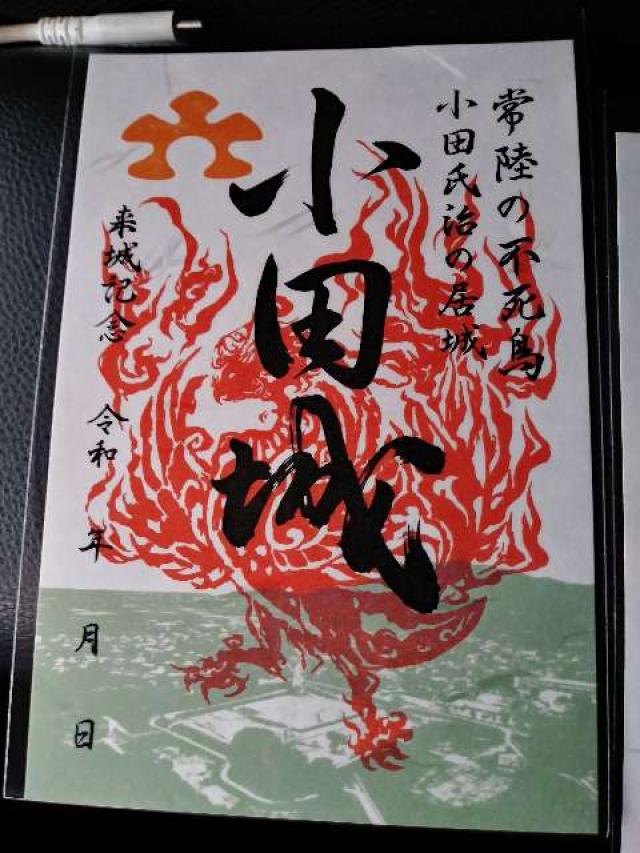 常陸の不死鳥
小田氏治の居城
小田城
来城記念
令和 年 月 日